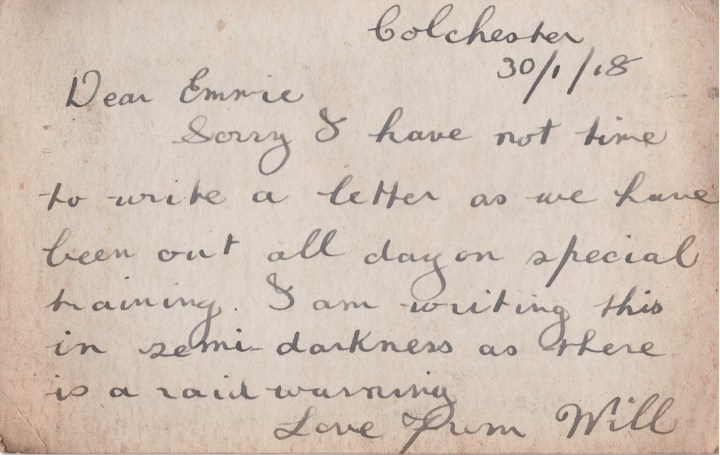 Colchester
30/1/18
Dear Emmie
Sorry I have not time
to write a letter as we have
been out all day on special
training. I am writing this
in semi-darkness as there
is a raid warning
Love from Will